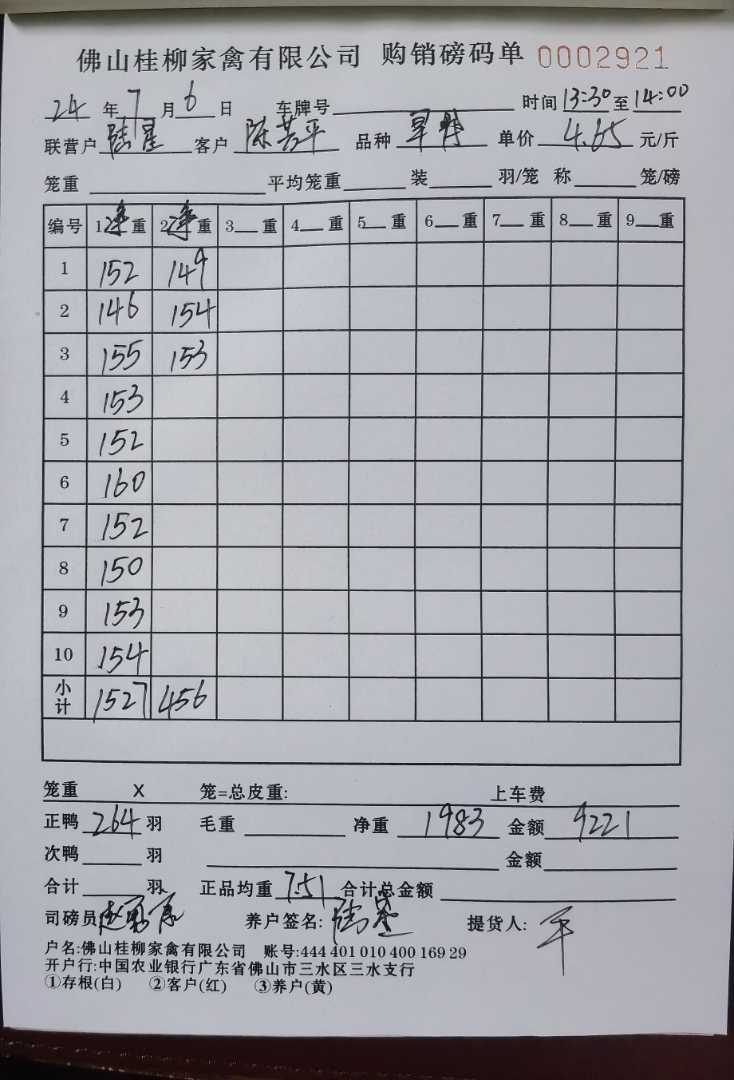 佛山桂柳家禽有限公司 购销磅码单 0002921
24 年 7 月 6 日 车牌号 时间 13:30 至 14:00
联营户 陆星 客户 陈芳平 品种 单价 4.65 元/斤
笼重 平均笼重 装 羽/笼 称 笼/磅
编号 1净重 2净重 3 重 4 重 5 重 6 重 7 重 8 重 9 重
1 152 149
2 146 154
3 155 153
4 153
5 152
6 160
7 152
8 150
9 153
10 154
小计 1527 456
笼重 X 笼=总皮重: 上车费
正鸭 264 羽 毛重 净重 1983 金额 9221
次鸭 羽 金额
合计 羽 正品均重 7.51 合计总金额
司磅员 养户签名: 陆星 提货人: 平
户名:佛山桂柳家禽有限公司 账号:444 401 010 400 169 29
开户行:中国农业银行广东省佛山市三水区三水支行
①存根(白) ②客户(红) ③养户(黄)